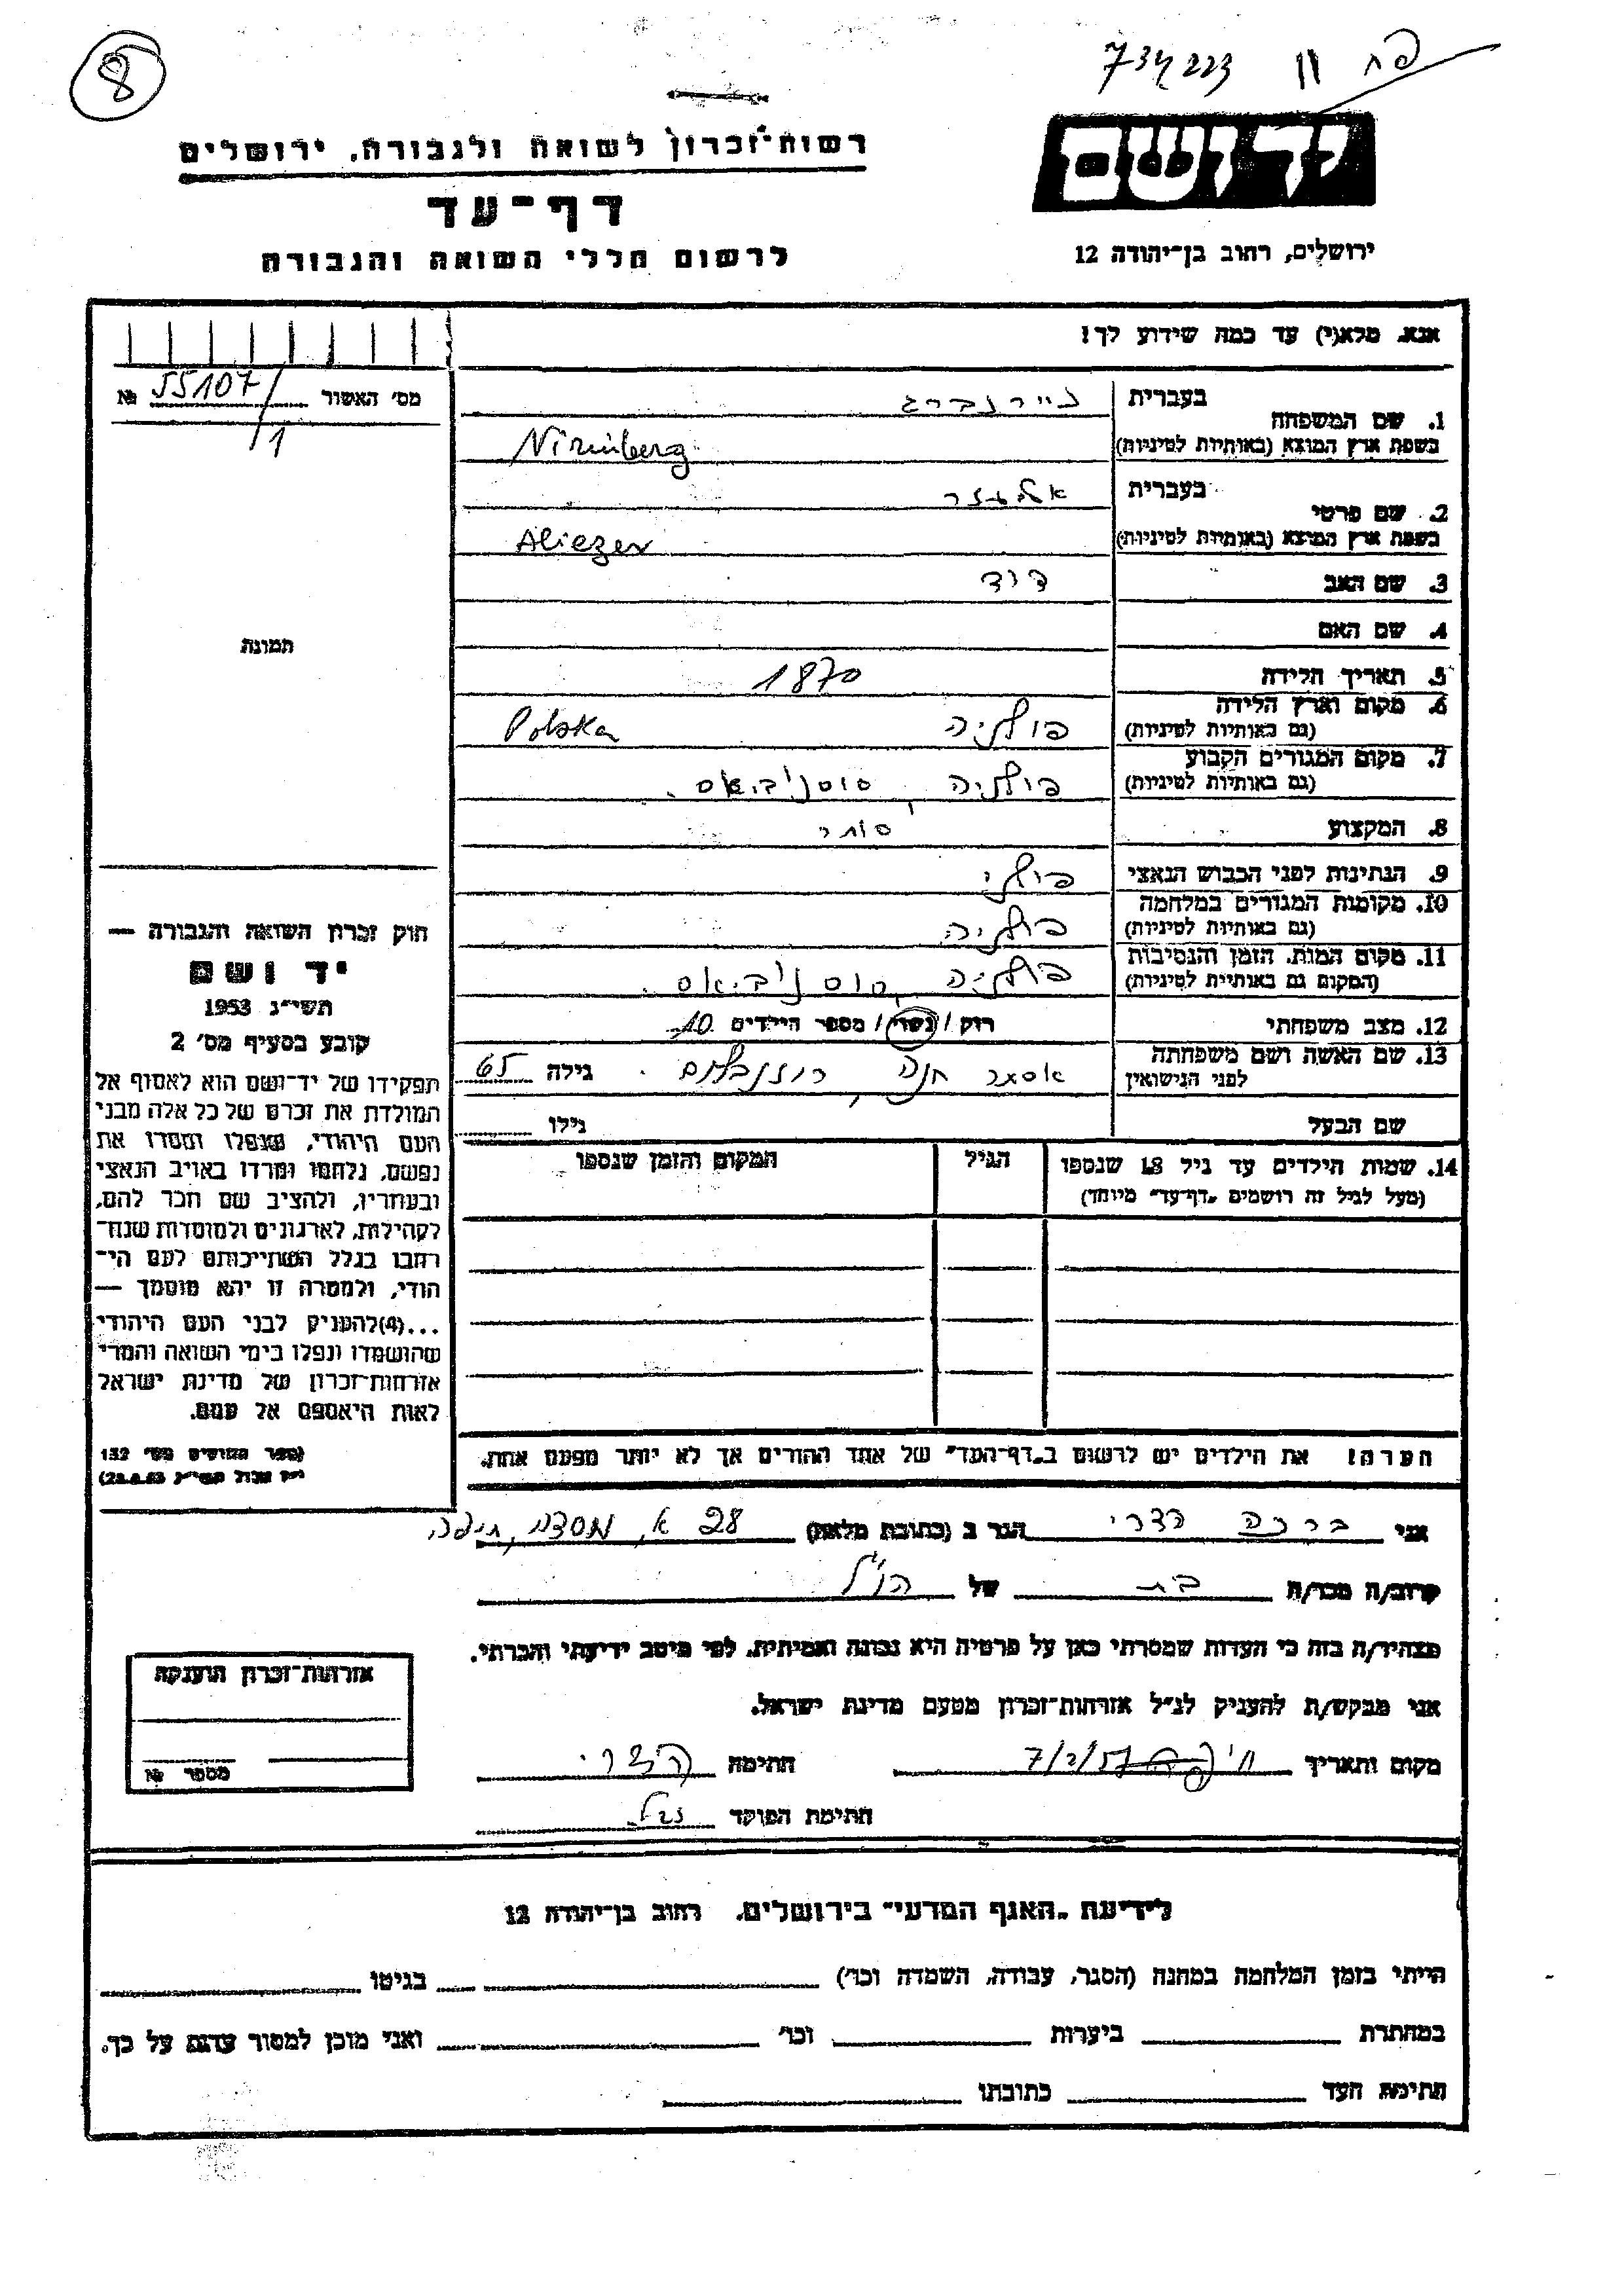 8
734223 פח 11
יד ושם
רשות־זכרון לשואה ולגבורה, ירושלים
דף־עד
לרשום חללי השואה והגבורה
ירושלים, רחוב בן־יהודה 12
אנא, מלא(י) עד כמה שידוע לך!
מס' האשור 55107/1 №
1. שם המשפחה בעברית
בשפת ארץ המוצא (באותיות לטיניות)
2. שם פרטי בעברית
בשפת ארץ המוצא (באותיות לטיניות) Aliezer
3. שם האב דוד
4. שם האם
5. תאריך הלידה 1870
6. מקום וארץ הלידה (גם באותיות לטיניות) פולניה Polska
7. מקום המגורים הקבוע (גם באותיות לטיניות) פולניה,
8. המקצוע סוחר
9. הנתינות לפני הכבוש הנאצי פולני
10. מקומות המגורים במלחמה (גם באותיות לטיניות) פולניה
11. מקום המות, הזמן והנסיבות (המקום גם באותיות לטיניות) פולניה,
12. מצב משפחתי רוק / נשוי / מספר הילדים 10
13. שם האשה ושם משפחתה לפני הנישואין אסתר חנה, רוזנבלום. גילה 65
שם הבעל גילו
14. שמות הילדים עד גיל 18 שנספו
(מעל לגיל זה רושמים "דף־עד" מיוחד)
הגיל
המקום והזמן שנספו
הערה! את הילדים יש לרשום ב"דף־העד" של אחד ההורים אך לא יותר מפעם אחת.
תמונה
חוק זכרון השואה והגבורה —
יד ושם
תשי"ג 1953
קובע בסעיף מס' 2
תפקידו של יד־ושם הוא לאסוף אל
המולדת את זכרם של כל אלה מבני
העם היהודי, שנפלו ומסרו את
נפשם, נלחמו ומרדו באויב הנאצי
ובעוזריו, ולהציב שם וזכר להם,
לקהילות, לארגונים ולמוסדות שנח־
רחבו בגלל השתייכותם לעם הי־
הודי, ולמטרה זו יהא מוסמך —
...(4)להעניק לבני העם היהודי
שהושמדו ונפלו בימי השואה והמרי
אזרחות־זכרון של מדינת ישראל
לאות היאספם אל עמם.
(ספר החוקים מס' 132
אני ברכה הדרי הגר ב (כתובת מלאה) 28 א, חיפה
קרוב/ה מכר/ה בת של הנ"ל
מצהיר/ה בזה כי העדות שמסרתי כאן על פרטיה היא נכונה ואמיתית, לפי מיטב ידיעתי והכרתי.
אני מבקש/ת להעניק לנ"ל אזרחות־זכרון מטעם מדינת ישראל.
מקום ותאריך חיפה 7/2/57 חתימה הדרי
חתימת הפוקד
אזרחות־זכרון הוענקה
מספר №
לידיעת "האגף המדעי" בירושלים, רחוב בן־יהודה 12
הייתי בזמן המלחמה במחנה (הסגר, עבודה, השמדה וכו') בגיטו
במחתרת ביערות וכו' ואני מוכן למסור עדות על כך.
חתימת העד כתובתו